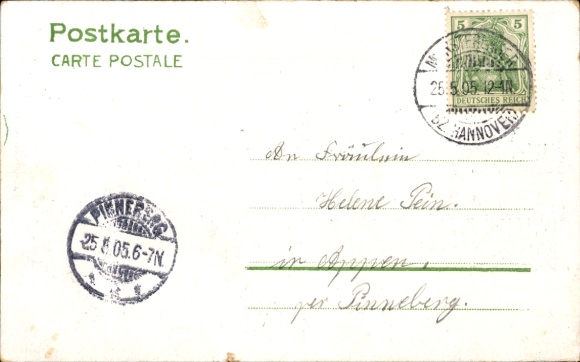 Postkarte.
CARTE POSTALE
5 5
DEUTSCHES REICH
25.5.05.12-1N.
BZ. HANNOVER
An Fräulein
Helene Pein.
in Appen.
per Pinneberg.
PINNEBERG
25.5.05.6-7N.